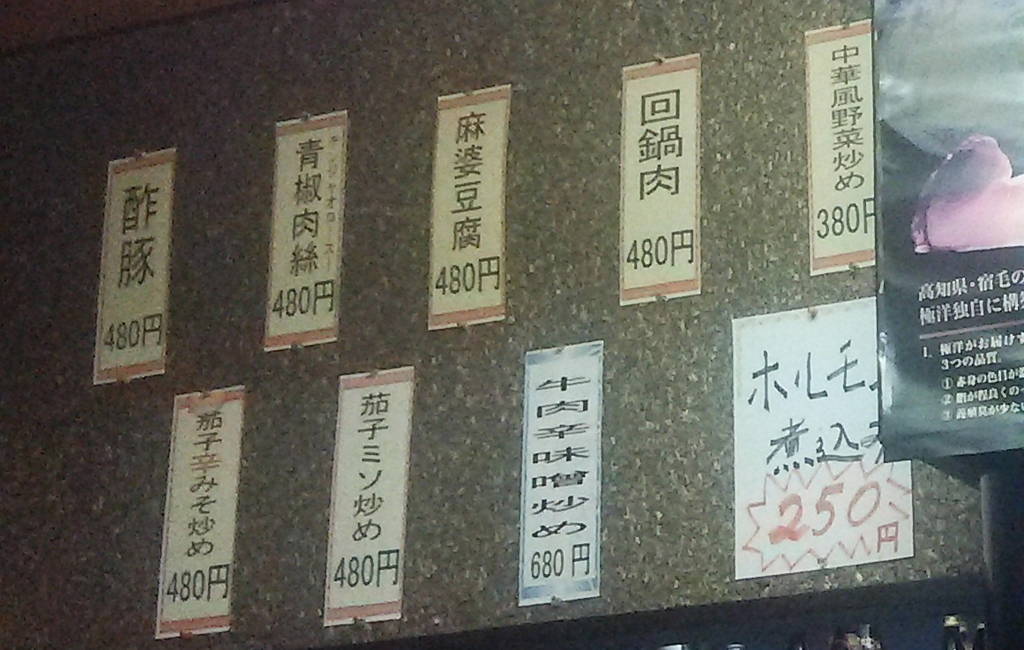 酢豚
480円
青椒肉絲
チンジャオロース
480円
麻婆豆腐
480円
回鍋肉
480円
中華風野菜炒め
380円
茄子辛みそ炒め
480円
茄子ミソ炒め
480円
牛肉辛味噌炒め
680円
ホルモ
煮込み
250円
高知県・宿毛の
極洋独自に構
1. 極洋がお届けす
3つの品質。
① 赤身の色目が
② 脂が程良くの
③ 養殖臭が少な